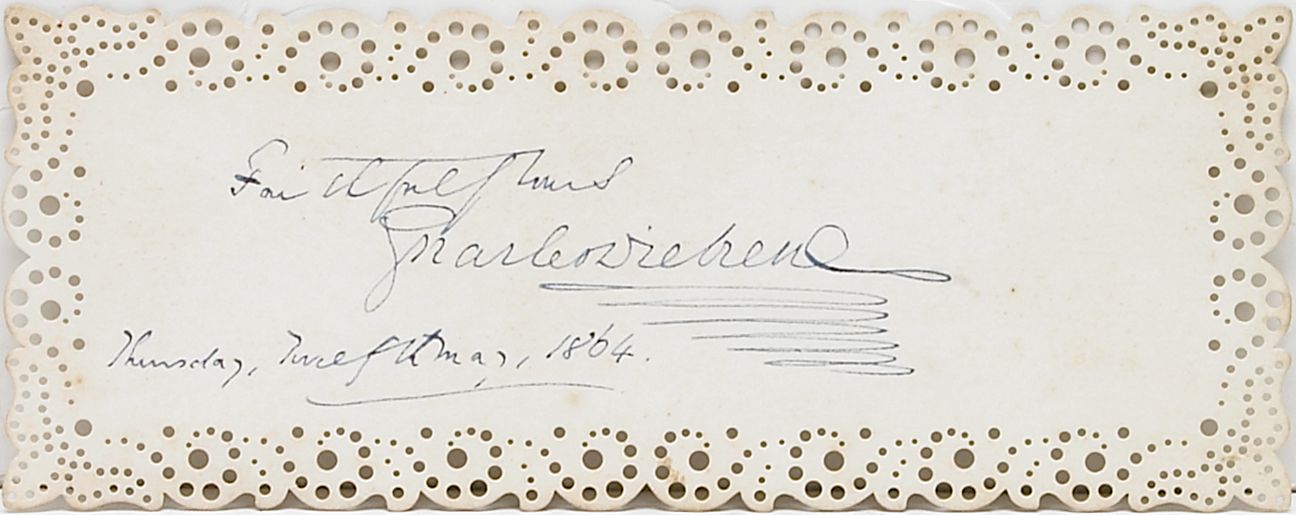 Faithfully Yours
Charles Dickens
Thursday, Twelfth May, 1864.